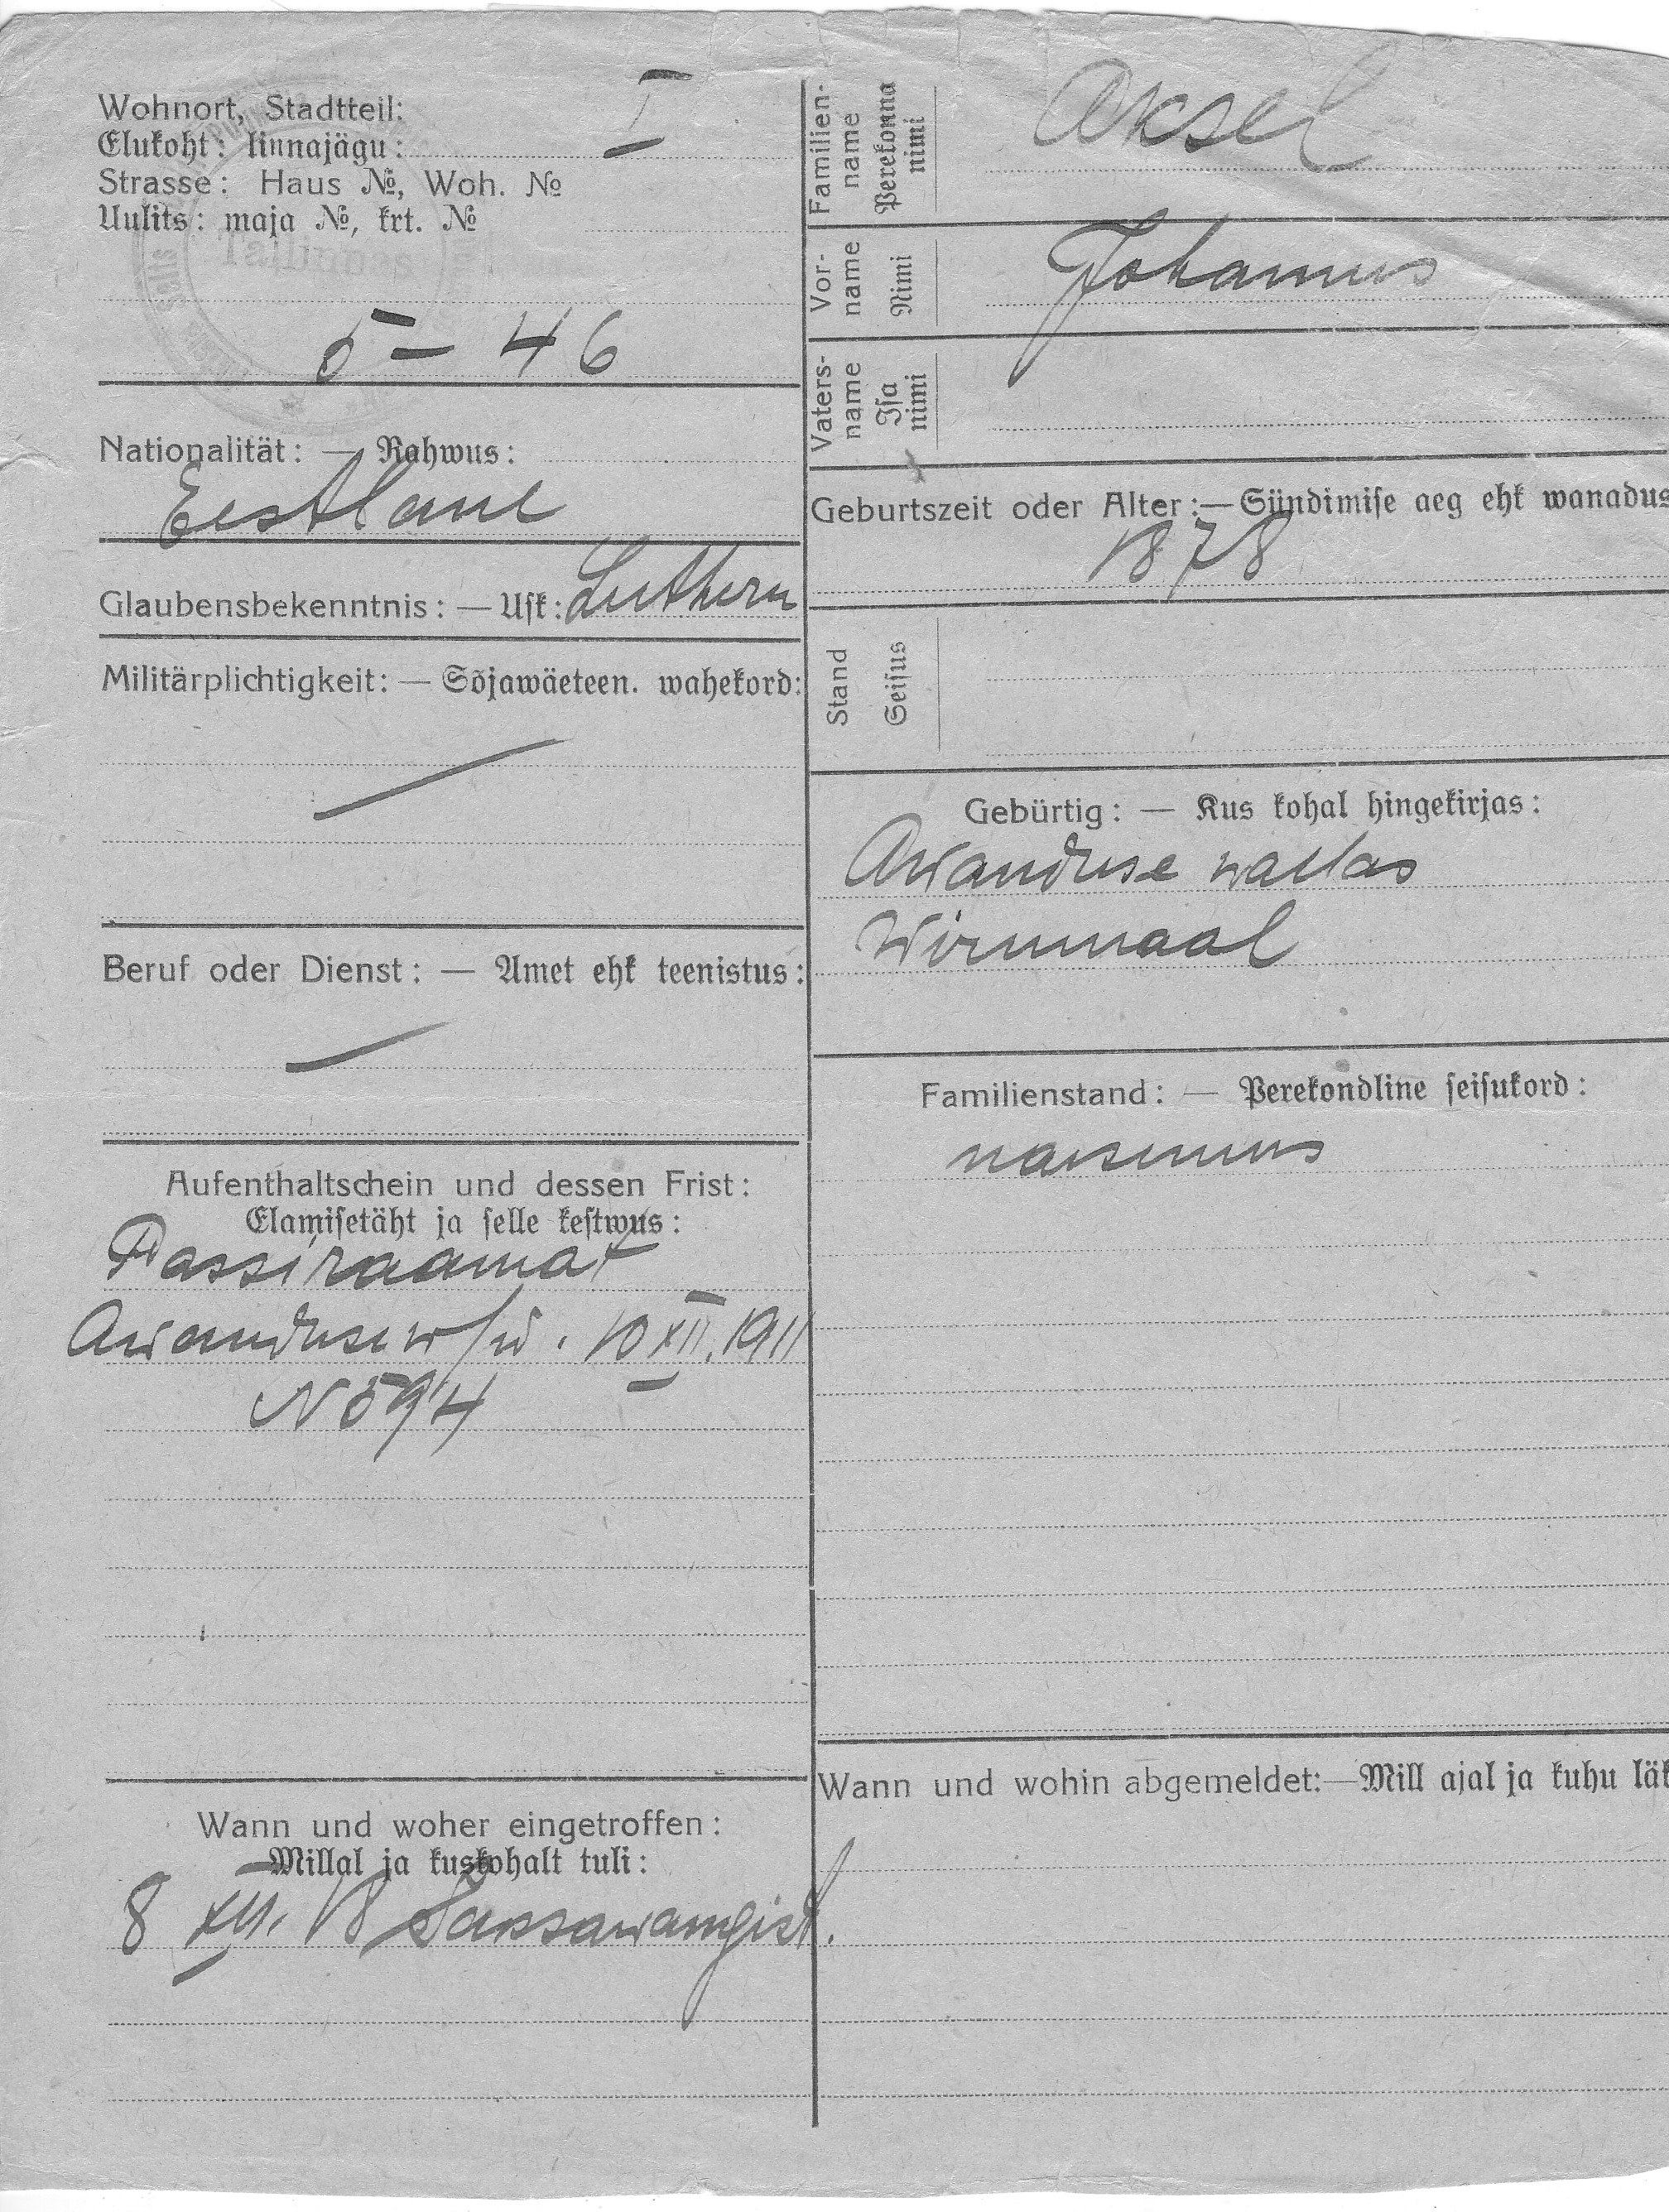 Wohnort, Stadtteil:
Elukoht: linnajägu: I
Strasse: Haus №, Woh. №
Uulits: maja №, krt. №
Tallinnas
5 — 46
Nationalität: — Rahwus:
Eestlane
Glaubensbekenntnis: — Usk: Luthern
Militärplichtigkeit: — Sõjawäeteen. wahekord:
Beruf oder Dienst: — Amet ehk teenistus:
Aufenthaltschein und dessen Frist:
Elamisetäht ja selle kestwus:
Passiraamat
Awanduse w/w. 10 XII. 1911
N 594
Wann und woher eingetroffen:
Millal ja kuskohalt tuli:
8 XII. 18
Familien-
name
Perekonna
nimi
Aksel
Vor-
name
Nimi
Johannes
Vaters-
name
Isa
nimi
Geburtszeit oder Alter:—Sündimise aeg ehk wanadus
1878
Stand
Seisus
Gebürtig: — Kus kohal hingekirjas:
Awanduse wallas
Wirumaal
Familienstand: — Perekondline seisukord:
naesemees
Wann und wohin abgemeldet:—Mill ajal ja kuhu läk